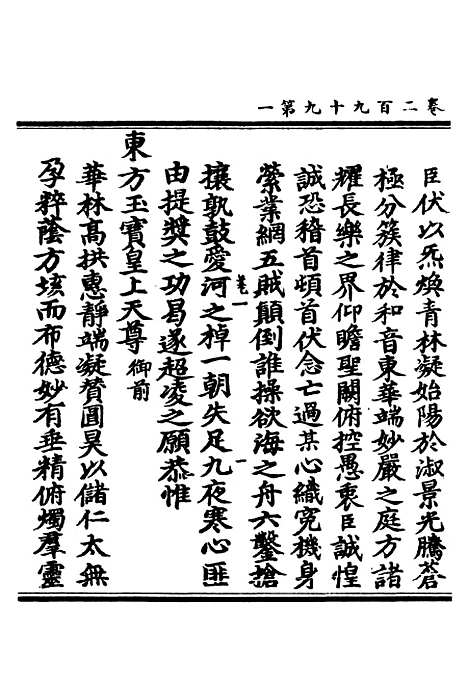 卷二百九十九第一
臣伏以炁煥青林凝始陽於淑景光騰蒼
極分簇律於和音東華端妙嚴之庭方諸
耀長樂之界仰瞻聖闕俯控愚衷臣誠惶
誠恐稽首頓首伏念亡過某心織寃機身
縈業網五賊顛倒誰操欲海之舟六鑿搶
攘孰鼓愛河之棹一朝失足九夜寒心匪
卷一 一
由提獎之功曷遂超凌之願恭惟
東方玉寳皇上天尊御前
華林髙拱惠靜端凝贊圓昊以儲仁太無
孕粹蔭方垓而布德妙有垂精俯燭羣靈